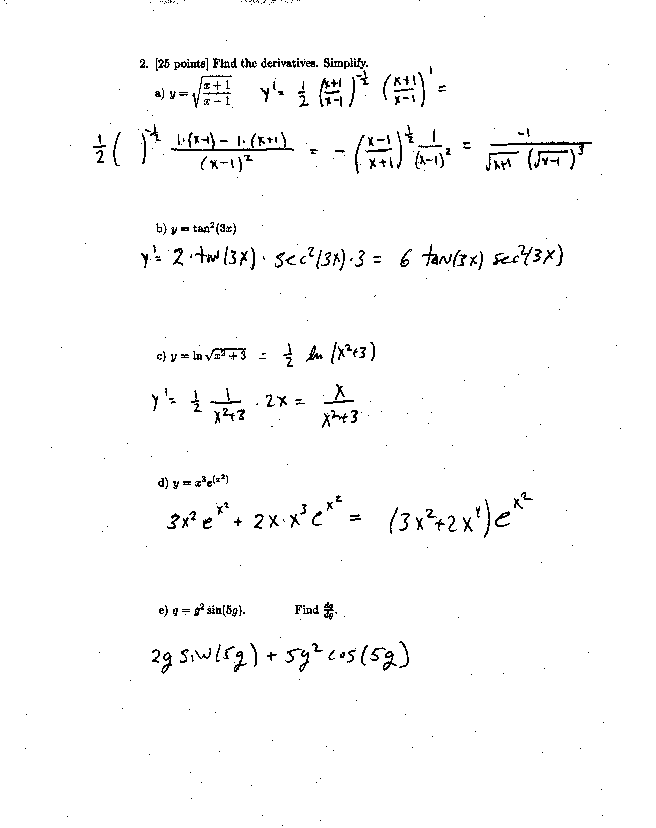 2. [25 points] Find the derivatives. Simplify.
a) y = √((x+1)/(x−1))   y' = 1/2 ((x+1)/(x−1))^(−1/2) ((x+1)/(x−1))' =
1/2 (   )^(−1/2) (1·(x−1) − 1·(x+1))/(x−1)² = −((x−1)/(x+1))^(1/2) 1/(x−1)² = −1/(√(x+1) (√(x−1))³)
b) y = tan²(3x)
y' = 2·tan(3x)·sec²(3x)·3 = 6 tan(3x) sec²(3x)
c) y = ln √(x²+3) = 1/2 ln (x²+3)
y' = 1/2 1/(x²+3) · 2x = x/(x²+3)
d) y = x³e^(x²)
3x² e^(x²) + 2x·x³ e^(x²) = (3x²+2x⁴)e^(x²)
e) q = g² sin(5g).   Find dq/dg.
2g sin(5g) + 5g² cos(5g)